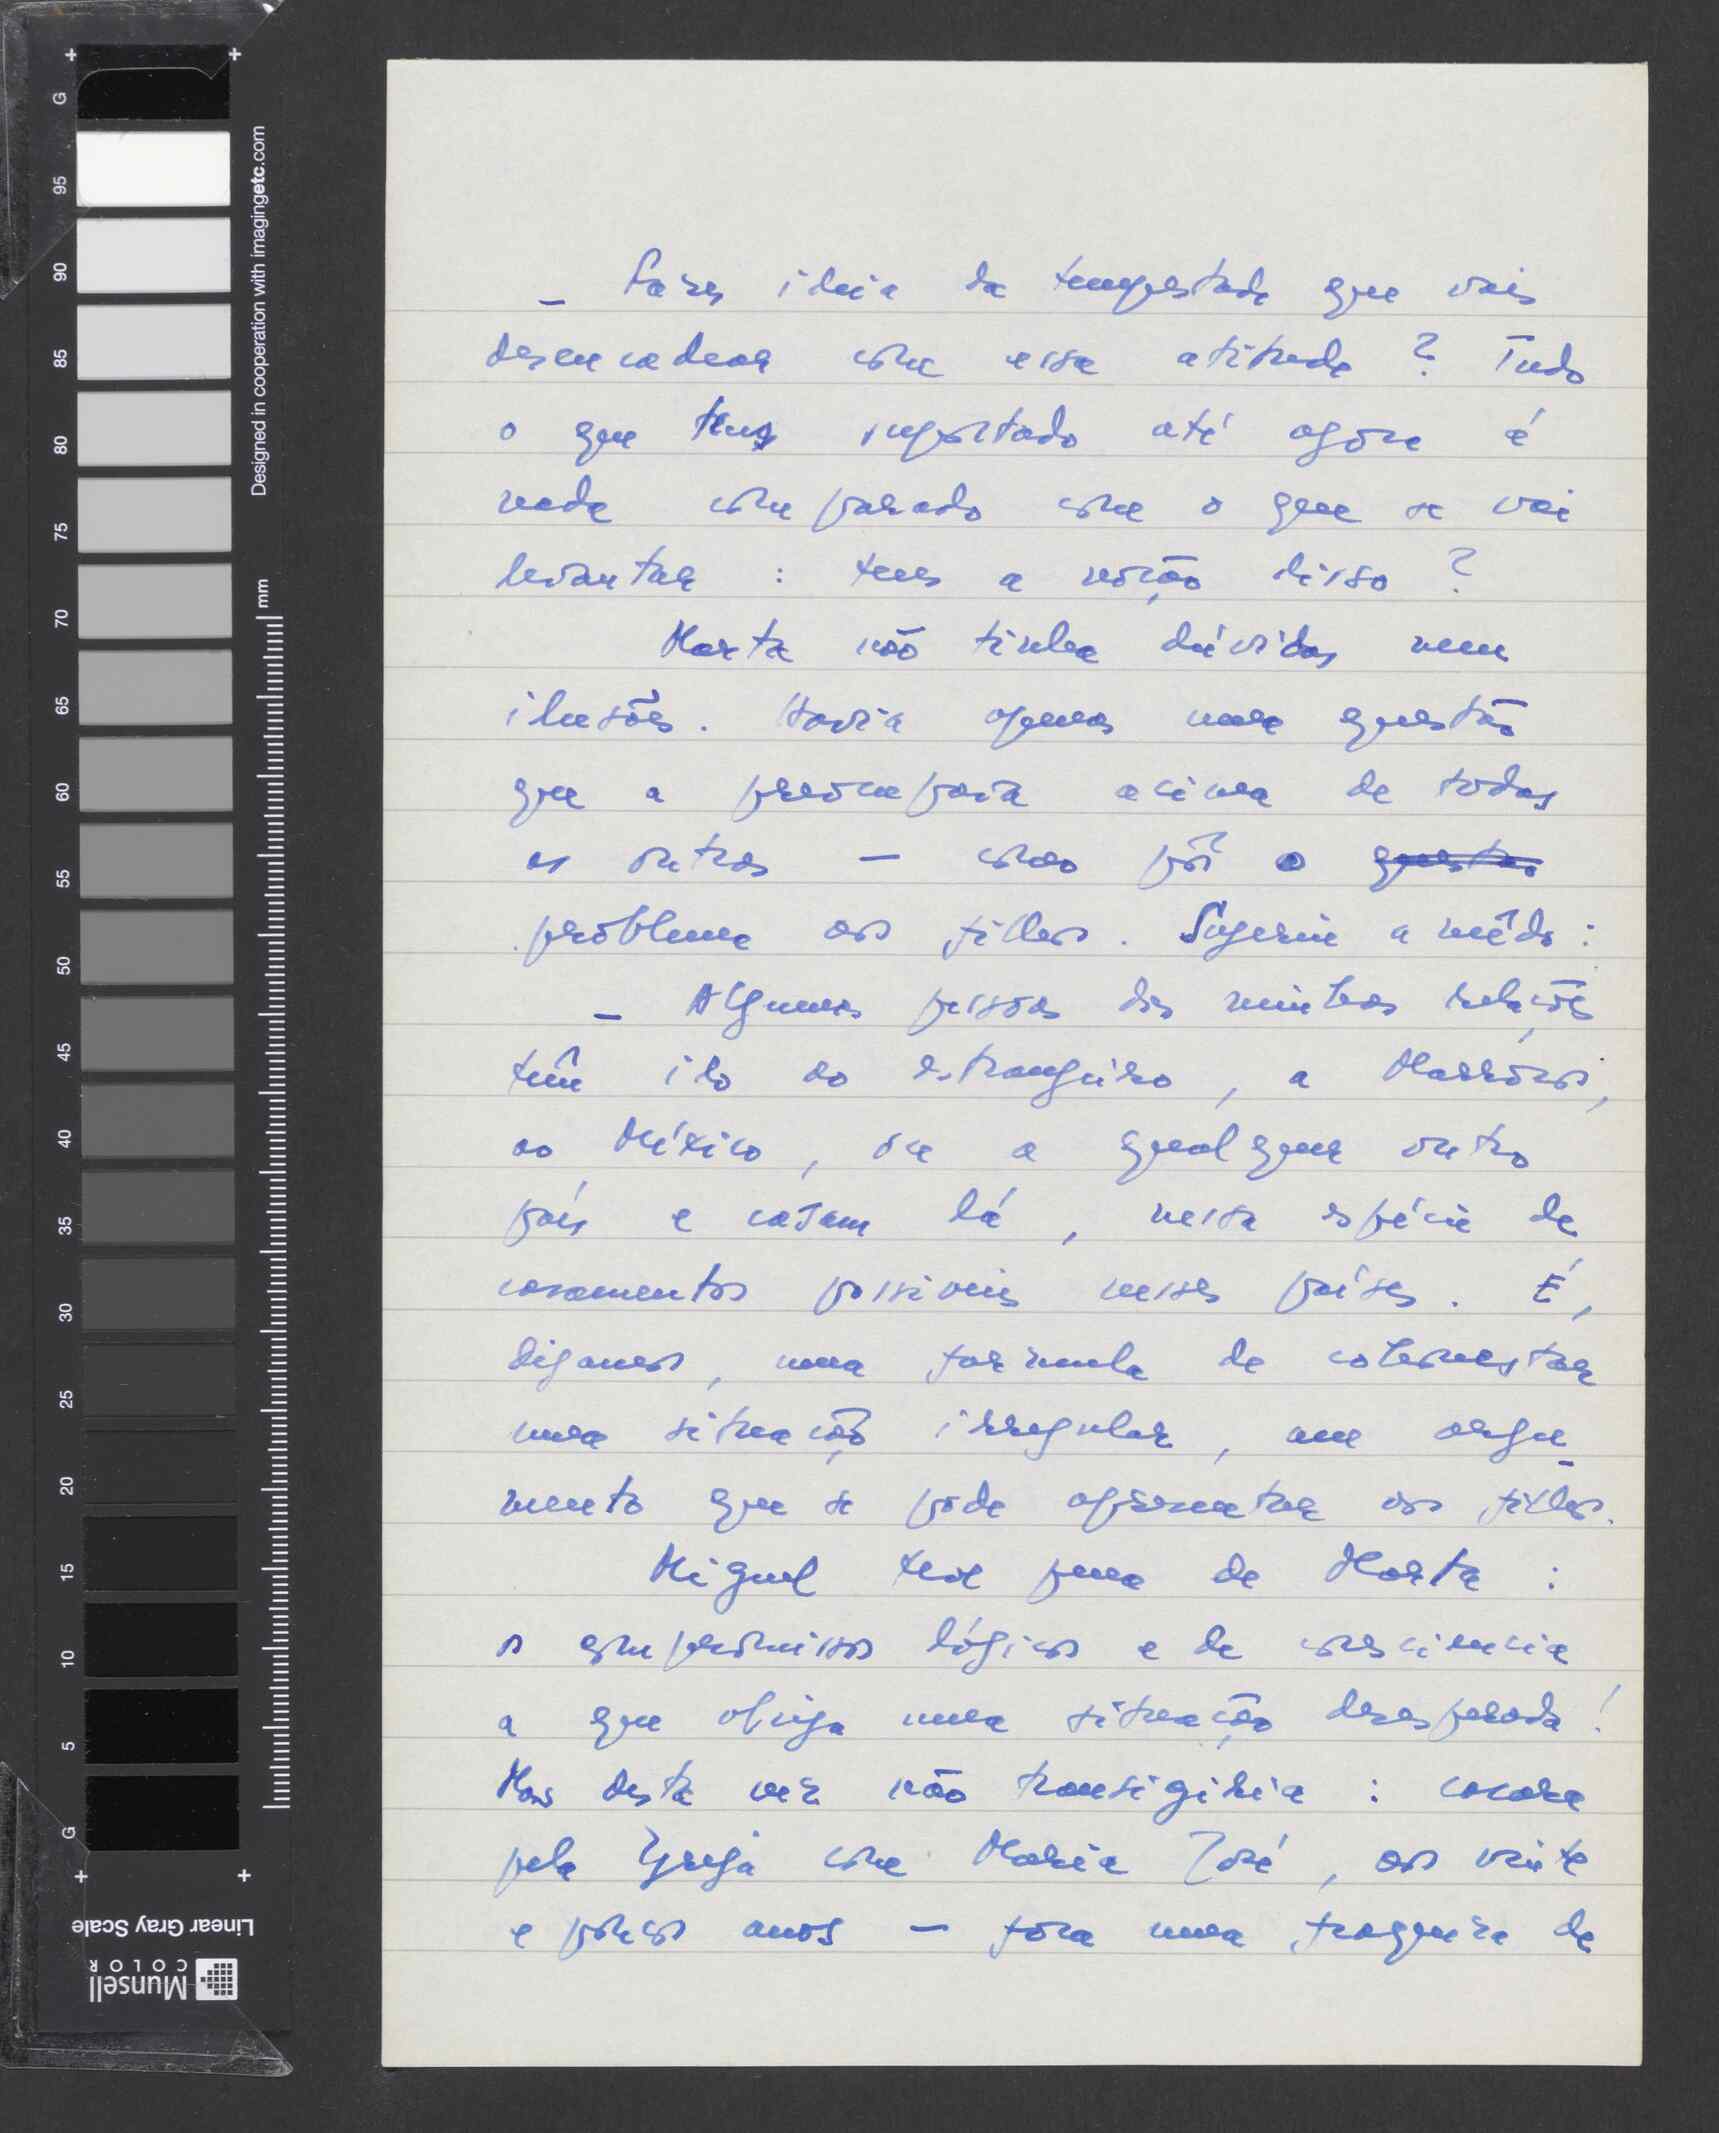 – Fazes ideia da tempestade que vais
desencadear com essa atitude ? Tudo
o que tens suportado até agora é
nada comparado com o que se vai
levantar : tens a noção disso ?
Marta não tinha dúvidas nem
ilusões. Havia apenas uma questão
que a preocupava acima de todas
as outras – como pôr o questão
problema aos filhos. Sugeriu a mêdo :
– Algumas pessoas das minhas relações
têm ido ao estrangeiro, a Marrocos,
ao México, ou a qualquer outro
país e casam lá, nessa espécie de
casamentos possiveis nesses paises. É,
digamos, uma formula de cohonestar
uma situação irregular, um argu-
mento que se pode apresentar aos filhos.
Miguel teve pena de Marta :
os compromissos lógicos e de consciencia
a que obriga uma situação desesperada !
Mas desta vez não transigiria : casara
pela Igreja com Maria José, aos vinte
e poucos anos – fora uma fraqueza de
G
95
90
85
80
75
70
65
60
55
50
45
40
35
30
25
20
15
10
5
G
Designed in cooperation with imagingetc.com
mm
Linear Gray Scale
Munsell
COLOR